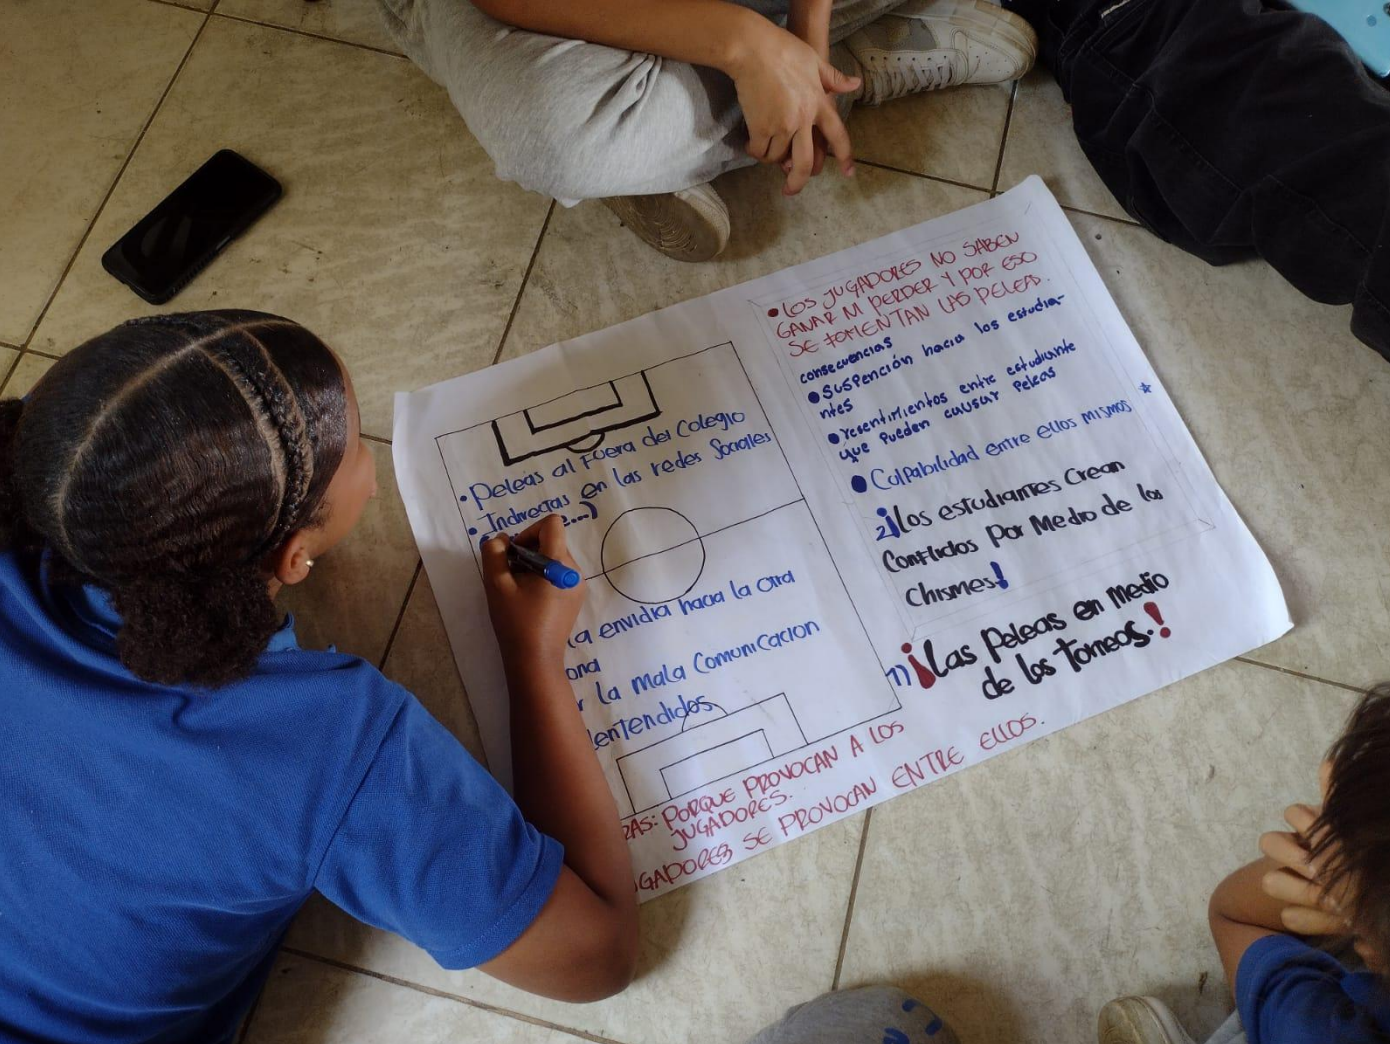 • LOS JUGADORES NO SABEN
GANAR NI PERDER Y POR ESO
SE FOMENTAN LAS PELEAD.
consecuencias
• Suspención hacia los estudia-
ntes
• resentimientos entre estudiante
que pueden causar Peleas
• Culpabilidad entre ellos mismos
2¡los estudiantes Crean
Conflictos Por Medio de los
Chismes!
1) ¡Las Peleas en medio
de los torneos.!
• Peleas al Fuera del Colegio
• Indirectas en las redes Sociales
la envidia hacia la otra
ona
r la mala Comunicacion
entendidos
RAS: PORQUE PROVOCAN A LOS
JUGADORES.
GADORES SE PROVOCAN ENTRE ELLOS.